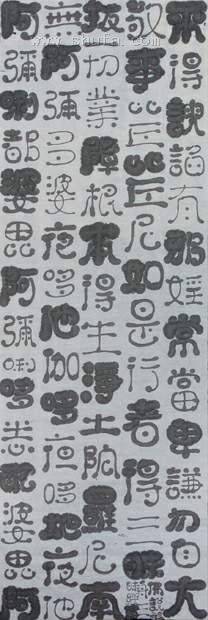 來得諛諂有邪婬常當卑謙勿自大
敬事比丘比丘尼如是行者得三昧
拔切業障根本得生淨土陀羅尼南
無阿彌多婆夜哆他伽哆夜哆地夜他
阿彌唎都婆毘阿彌唎哆悉耽婆毘阿